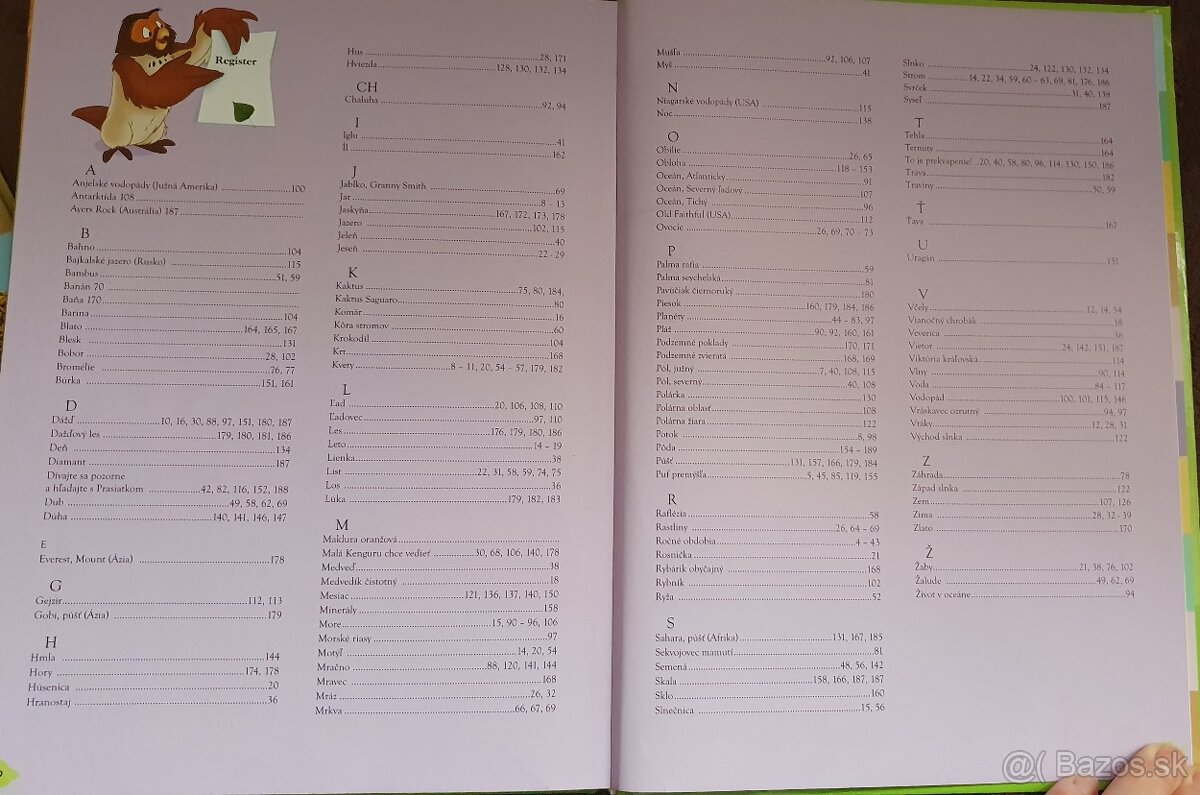 Register
A
Anjelské vodopády (Južná Amerika) ..... 100
Antarktída 108 .....
Ayers Rock (Austrália) 187 .....
B
Bahno ..... 104
Bajkalské jazero (Rusko) ..... 115
Bambus ..... 51, 59
Banán 70 .....
Baňa 170 .....
Barina ..... 104
Blato ..... 164, 165, 167
Blesk ..... 131
Bobor ..... 28, 102
Bromélie ..... 76, 77
Búrka ..... 151, 161
D
Dážď ..... 10, 16, 30, 88, 97, 151, 180, 187
Dažďový les ..... 179, 180, 181, 186
Deň ..... 134
Diamant ..... 187
Dívajte sa pozorne
a hľadajte s Prasiatkom ..... 42, 82, 116, 152, 188
Dub ..... 49, 58, 62, 69
Dúha ..... 140, 141, 146, 147
E
Everest, Mount (Ázia) ..... 178
G
Gejzír ..... 112, 113
Gobi, púšť (Ázia) ..... 179
H
Hmla ..... 144
Hory ..... 174, 178
Húsenica ..... 20
Hranostaj ..... 36
Hus ..... 28, 171
Hviezda ..... 128, 130, 132, 134
CH
Chaluha ..... 92, 94
I
Iglu ..... 41
Íl ..... 162
J
Jablko, Granny Smith ..... 69
Jar ..... 8 - 13
Jaskyňa ..... 167, 172, 173, 178
Jazero ..... 102, 115
Jeleň ..... 40
Jeseň ..... 22 - 29
K
Kaktus ..... 75, 80, 184,
Kaktus Saguaro ..... 80
Komár ..... 16
Kôra stromov ..... 60
Krokodíl ..... 104
Krt ..... 168
Kvety ..... 8 - 11, 20, 54 - 57, 179, 182
L
Ľad ..... 20, 106, 108, 110
Ľadovec ..... 97, 110
Les ..... 176, 179, 180, 186
Leto ..... 14 - 19
Lienka ..... 38
List ..... 22, 31, 58, 59, 74, 75
Los ..... 36
Lúka ..... 179, 182, 183
M
Maklura oranžová .....
Malá Kenguru chce vedieť ..... 30, 68, 106, 140, 178
Medveď ..... 38
Medvedík čistotný ..... 18
Mesiac ..... 121, 136, 137, 140, 150
Minerály ..... 158
More ..... 15, 90 - 96, 106
Morské riasy ..... 97
Motýľ ..... 14, 20, 54
Mračno ..... 88, 120, 141, 144
Mravec ..... 168
Mráz ..... 26, 32
Mrkva ..... 66, 67, 69
Mušľa ..... 92, 106, 107
Myš ..... 41
N
Niagarské vodopády (USA) ..... 115
Noc ..... 138
O
Obilie ..... 26, 65
Obloha ..... 118 - 153
Oceán, Atlantický ..... 91
Oceán, Severný ľadový ..... 107
Oceán, Tichý ..... 96
Old Faithful (USA) ..... 112
Ovocie ..... 26, 69, 70 - 73
P
Palma rafia ..... 59
Palma seychelská ..... 81
Pavúčiak čiernoruký ..... 180
Piesok ..... 160, 179, 184, 186
Planéty ..... 44 - 83, 97
Pláž ..... 90, 92, 160, 161
Podzemné poklady ..... 170, 171
Podzemné zvieratá ..... 168, 169
Pól, južný ..... 7, 40, 108, 115
Pól, severný ..... 40, 108
Polárka ..... 130
Polárna oblasť ..... 108
Polárna žiara ..... 122
Potok ..... 8, 98
Pôda ..... 154 - 189
Púšť ..... 131, 157, 166, 179, 184
Puf premýšľa ..... 5, 45, 85, 119, 155
R
Raflézia ..... 58
Rastliny ..... 26, 64 - 69
Ročné obdobia ..... 4 - 43
Rosnička ..... 21
Rybárik obyčajný ..... 168
Rybník ..... 102
Ryža ..... 52
S
Sahara, púšť (Afrika) ..... 131, 167, 185
Sekvojovec mamutí ..... 81
Semená ..... 48, 56, 142
Skala ..... 158, 166, 187, 187
Sklo ..... 160
Slnečnica ..... 15, 56
Slnko ..... 24, 122, 130, 132, 134
Strom ..... 14, 22, 34, 59, 60 - 63, 69, 81, 176, 186
Svrček ..... 31, 40, 138
Syseľ ..... 187
T
Tehla ..... 164
Termity ..... 164
To je prekvapenie! ..... 20, 40, 58, 80, 96, 114, 130, 150, 186
Tráva ..... 182
Traviny ..... 50, 59
Ť
Ťava ..... 167
U
Uragán ..... 151
V
Včely ..... 12, 14, 54
Vianočný chrobák ..... 18
Veverica ..... 36
Vietor ..... 24, 142, 151, 187
Viktória kráľovská ..... 114
Vlny ..... 90, 114
Voda ..... 84 - 117
Vodopád ..... 100, 101, 115, 146
Vráskavec ozrutný ..... 94, 97
Vtáky ..... 12, 28, 31
Východ slnka ..... 122
Z
Záhrada ..... 78
Západ slnka ..... 122
Zem ..... 107, 126
Zima ..... 28, 32 - 39
Zlato ..... 170
Ž
Žaby ..... 21, 38, 76, 102
Žalude ..... 49, 62, 69
Život v oceáne ..... 94
@( Bazos.sk